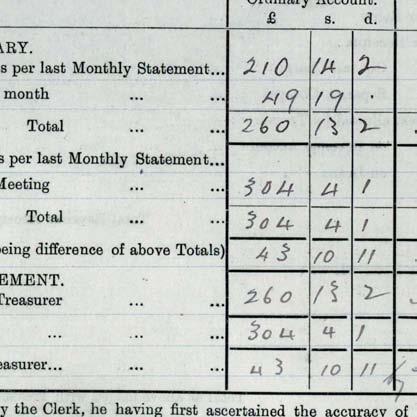 Ordinary Account.
£ s. d.
ARY.
s per last Monthly Statement... 210 14 2
month ... ... 49 19 .
Total ... ... 260 13 2
s per last Monthly Statement...
Meeting ... ... 304 4 1
Total ... ... 304 4 1
being difference of above Totals) 43 10 11
EMENT.
Treasurer ... ... 260 13 2
... ... 304 4 1
easurer... ... ... 43 10 11
y the Clerk, he having first ascertained the accuracy of